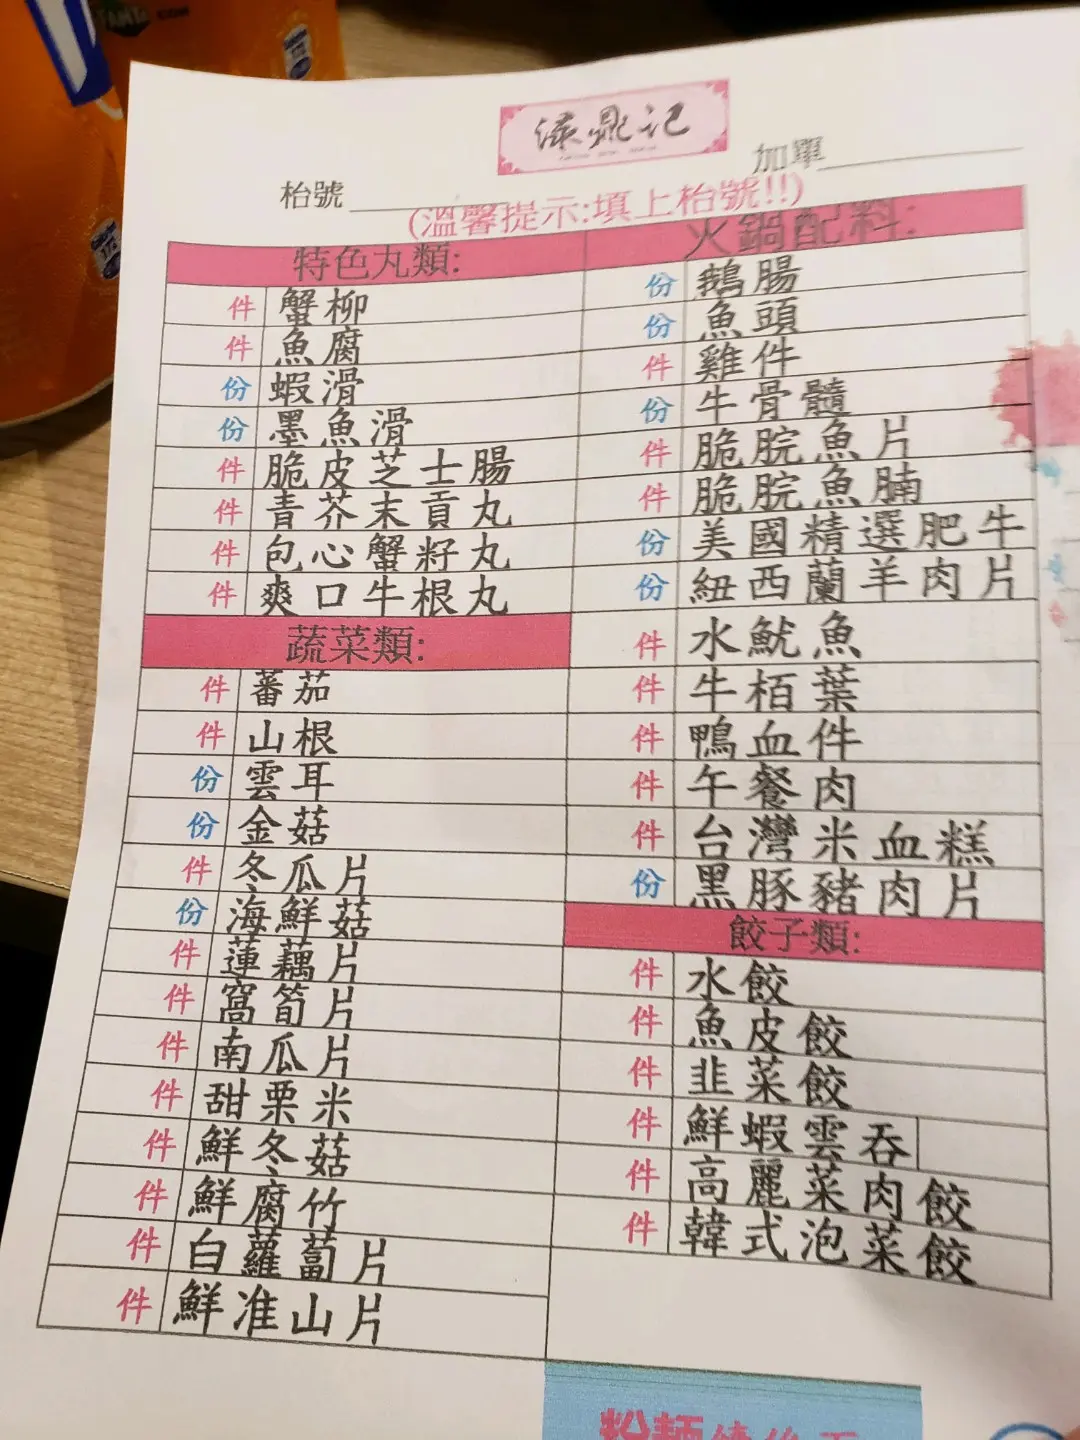 涤鼎记
枱號
加單
(溫馨提示:填上枱號!!)
特色丸類:
件 蟹柳
件 魚腐
份 蝦滑
份 墨魚滑
件 脆皮芝士腸
件 青芥末貢丸
件 包心蟹籽丸
件 爽口牛根丸
蔬菜類:
件 蕃茄
件 山根
份 雲耳
份 金菇
件 冬瓜片
份 海鮮菇
件 蓮藕片
件 窩筍片
件 南瓜片
件 甜栗米
件 鮮冬菇
件 鮮腐竹
件 白蘿蔔片
件 鮮准山片
火鍋配料:
份 鵝腸
份 魚頭
件 雞件
份 牛骨髓
件 脆脘魚片
件 脆脘魚腩
份 美國精選肥牛
份 紐西蘭羊肉片
件 水魷魚
件 牛栢葉
件 鴨血件
件 午餐肉
件 台灣米血糕
份 黑豚豬肉片
餃子類:
件 水餃
件 魚皮餃
件 韭菜餃
件 鮮蝦雲吞
件 高麗菜肉餃
件 韓式泡菜餃